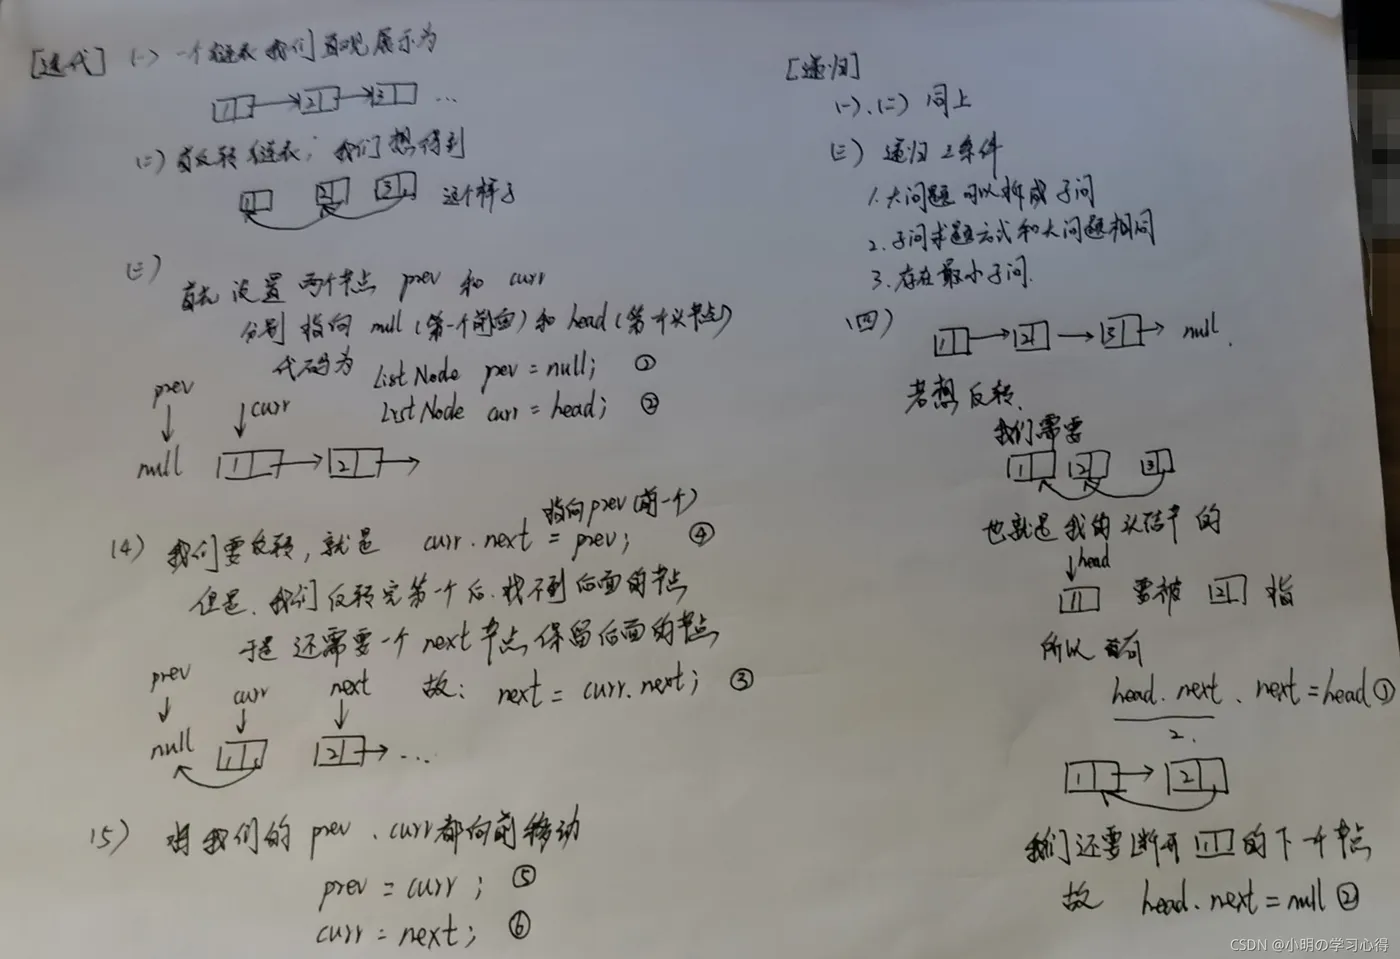 [迭代] (一) 一个链表我们直观展示为
1 2 3 ...
(二) 首反转链表, 我们想得到
1 2 3 这个样子
(三)
首先设置两个节点 prev 和 curr
分别指向 null (第一个前面) 和 head (第一个头节点)
代码为 ListNode prev = null; ①
ListNode curr = head; ②
prev
curr
null 1 2
(4) 我们要反转, 就是 curr.next = prev; ④
指向prev(前一个)
但是, 我们反转完第一个后, 找不到后面的节点
于是还需要一个 next 节点, 保留后面的节点
故: next = curr.next; ③
prev curr next
null 1 2 ...
(5) 将我们的 prev、curr都向前移动
prev = curr; ⑤
curr = next; ⑥
[递归]
(一)、(二) 同上
(三) 递归三条件
1. 大问题可以拆成子问
2. 子问求题方式和大问题相同
3. 存在最小子问.
(四)
1 2 3 null.
若想反转,
我们需要
1 2 3
也就是我的头结节的
head
1 要被 2 指
所以有
head.next.next=head①
2.
1 2
我们还要断开 1 的下一个节点
故 head.next=null②
CSDN @小明の学习心得